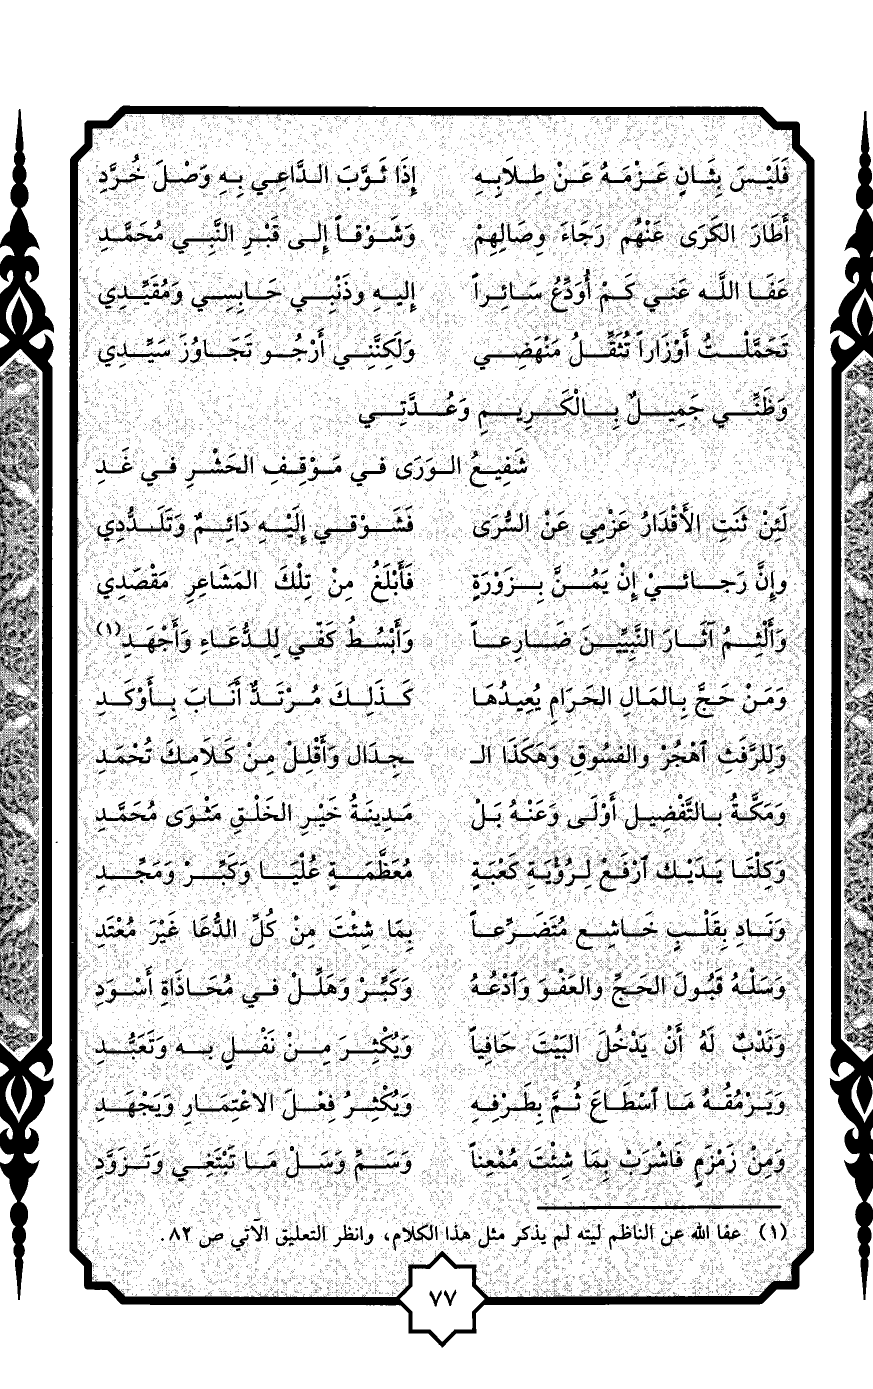 فَلَيْسَ بِثَانٍ عَزْمَهُ عَنْ طِلَابِهِ إِذَا ثَوَّبَ الدَّاعِي بِهِ وَصْلَ خُرَّدِ
أَطَارَ الكَرَى عَنْهُم رَجَاءَ وِصَالِهِمْ وَشَوْقاً إِلى قَبْرِ النَّبِي مُحَمَّدِ
عَفَا اللَّه عَني كَمْ أُوَدِّعُ سَائِراً إِليهِ وذَنْبِي حَابِسِي وَمُقَيِّدِي
تَحَمَّلْتُ أَوْزَاراً تُثَقِّلُ مَنْهَضِي وَلَكِنَّنِي أَرْجُو تَجَاوُزَ سَيِّدِي
وَظَنِّي جَمِيلٌ بِالْكَرِيمِ وَعُدَّتِي
شَفِيعُ الوَرَى في مَوْقِفِ الحَشْرِ في غَدِ
لَئِنْ ثَنَتِ الأَقْدَارُ عَزْمِي عَنْ السُّرَى فَشَوْقي إِلَيْهِ دَائِمٌ وَتَلَدُّدِي
وإِنَّ رَجائيْ إِنْ يَمُنَّ بِزَوْرَةٍ فَأَبْلَغُ مِنْ تِلْكَ المَشَاعِرِ مَقْصَدِي
وَأَلْثِمُ آثَارَ النَّبِيِّينَ ضَارِعاً وَأَبْسُطُ كَفّي لِلدُّعَاءِ وَأَجْهَدِ(١)
وَمَنْ حَجَّ بِالمَالِ الحَرَامِ يُعِيدُهَا كَذَلِكَ مُرْتَدٌّ أَنَابَ بِأَوْكَدِ
وَلِلرَّفَثِ ٱهْجُرْ والفسُوقِ وَهَكَذَا الـ ـجِدَال وَأَقْلِلْ مِنْ كَلَامِكَ تُحْمَدِ
وَمَكَّةُ بالتَّفْضِيلِ أَوْلَى وَعَنْهُ بَلْ مَدِينَةُ خَيْرِ الخَلْقِ مَثْوَى مُحَمَّدِ
وَكِلْتَا يَدَيْكَ ٱرْفَعْ لِرُؤْيَةِ كَعْبَةٍ مُعَظَّمَةٍ عُلْيَا وَكَبِّرْ وَمَجِّدِ
وَنَادِ بِقَلْبٍ خَاشِعٍ مُتَضَرِّعاً بِمَا شِئْتَ مِنْ كُلِّ الدُّعَا غَيْرَ مُعْتَدِ
وَسَلْهُ قَبُولَ الحَجِّ والعَفْوَ وَٱدْعُهُ وَكَبِّرْ وَهَلِّلْ في مُحَاذَاةِ أَسْوَدِ
وَنَدْبٌ لَهُ أَنْ يَدْخُلَ البَيْتَ حَافِياً وَيُكْثِرَ مِنْ نَفْلٍ بِه وَتَعَبُّدِ
وَيَرْمُقُهُ مَا ٱسْطَاعَ ثُمَّ بِطَرْفِهِ وَيُكْثِرُ فِعْلَ الاعْتِمَارِ وَيَجْهَدِ
وَمِنْ زَمْزَمٍ فَاشْرَبْ بِمَا شِئْتَ مُمْعِناً وَسَمِّ وَسَلْ مَا تَبْتَغِي وَتَزَوَّدِ
(١) عفا الله عن الناظم ليته لم يذكر مثل هذا الكلام، وانظر التعليق الآتي ص ٨٢.
٧٧